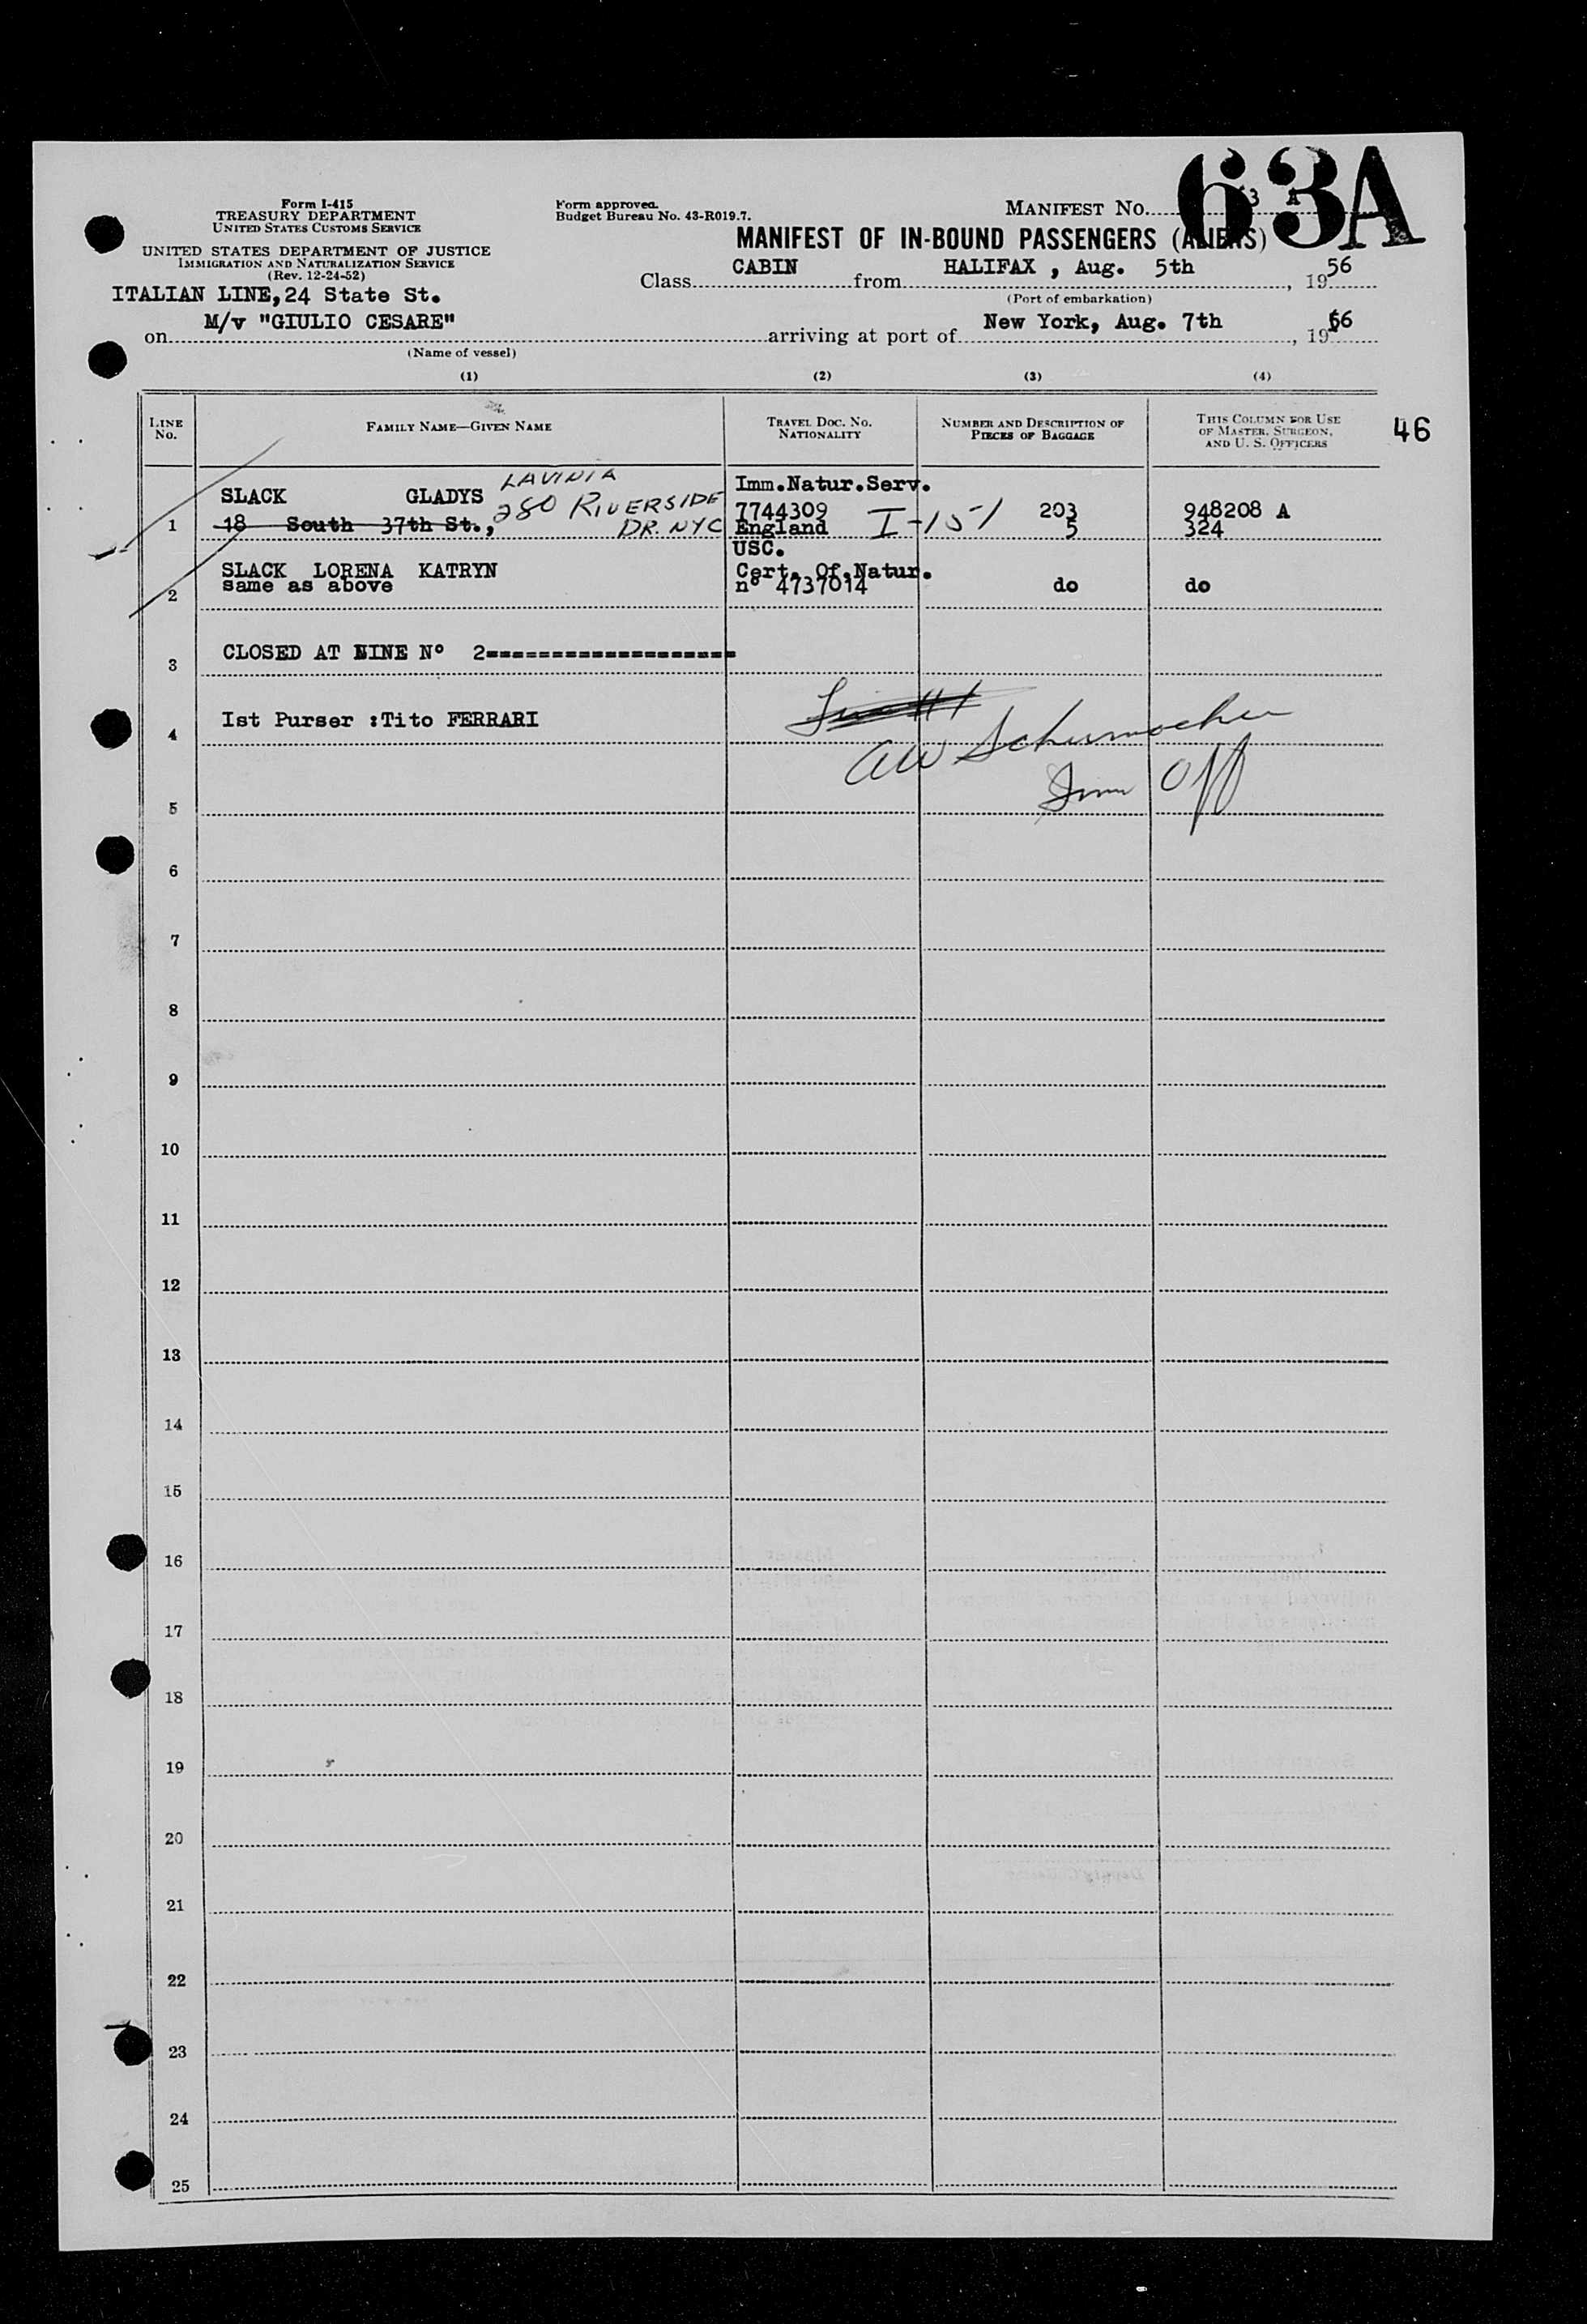 63A
Form I-415
TREASURY DEPARTMENT
UNITED STATES CUSTOMS SERVICE
UNITED STATES DEPARTMENT OF JUSTICE
IMMIGRATION AND NATURALIZATION SERVICE
(Rev. 12-24-52)
Form approved.
Budget Bureau No. 43-R019.7.
MANIFEST NO. 63 A
MANIFEST OF IN-BOUND PASSENGERS (ALIENS)
Class CABIN from HALIFAX , Aug. 5th , 1956
(Port of embarkation)
ITALIAN LINE,24 State St.
on M/v "GIULIO CESARE" arriving at port of New York, Aug. 7th , 1956
(Name of vessel)
(1) (2) (3) (4)
LINE No. FAMILY NAME—GIVEN NAME TRAVEL DOC. NO. NATIONALITY NUMBER AND DESCRIPTION OF PIECES OF BAGGAGE THIS COLUMN FOR USE OF MASTER, SURGEON, AND U. S. OFFICERS
46
LAVINIA Imm.Natur.Serv.
SLACK GLADYS 280 RIVERSIDE 7744309 I-151 203 948208 A
1 18 South 37th St., DR. NYC England 5 324
USC.
SLACK LORENA KATRYN Cert. Of.Natur.
2 same as above n° 4737014 do do
3 CLOSED AT LINE N° 2===================
4 Ist Purser :Tito FERRARI
AW Schumacher
Imm Off
5
6
7
8
9
10
11
12
13
14
15
16
17
18
19
20
21
22
23
24
25